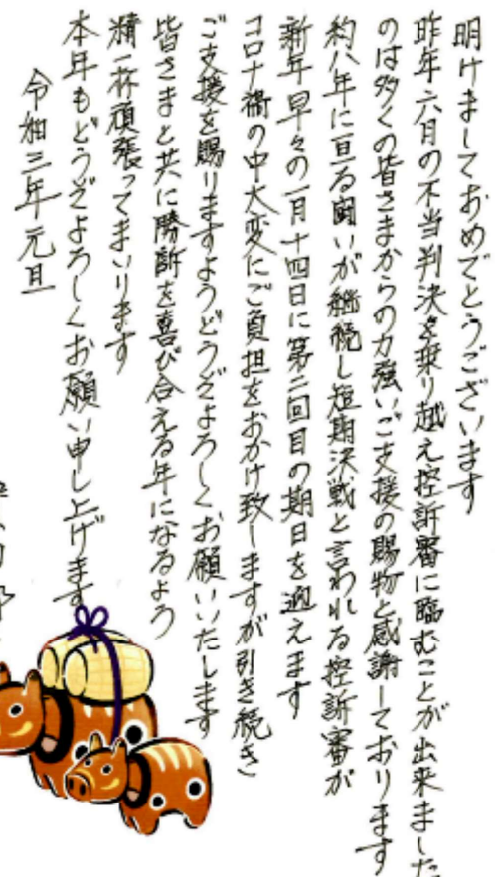 明けましておめでとうございます
昨年六月の不当判決を乗り越え控訴審に臨むことが出来ました
のは多くの皆さまからの力強いご支援の賜物と感謝しております
約八年に亘る闘いが継続し短期決戦と言われる控訴審が
新年早々の一月十四日に第二回目の期日を迎えます
コロナ禍の中大変にご負担をおかけ致しますが引き続き
ご支援を賜りますようどうぞよろしくお願いいたします
皆さまと共に勝訴を喜び合える年になるよう
精一杯頑張ってまいります
本年もどうぞよろしくお願い申し上げます
令和三年元旦